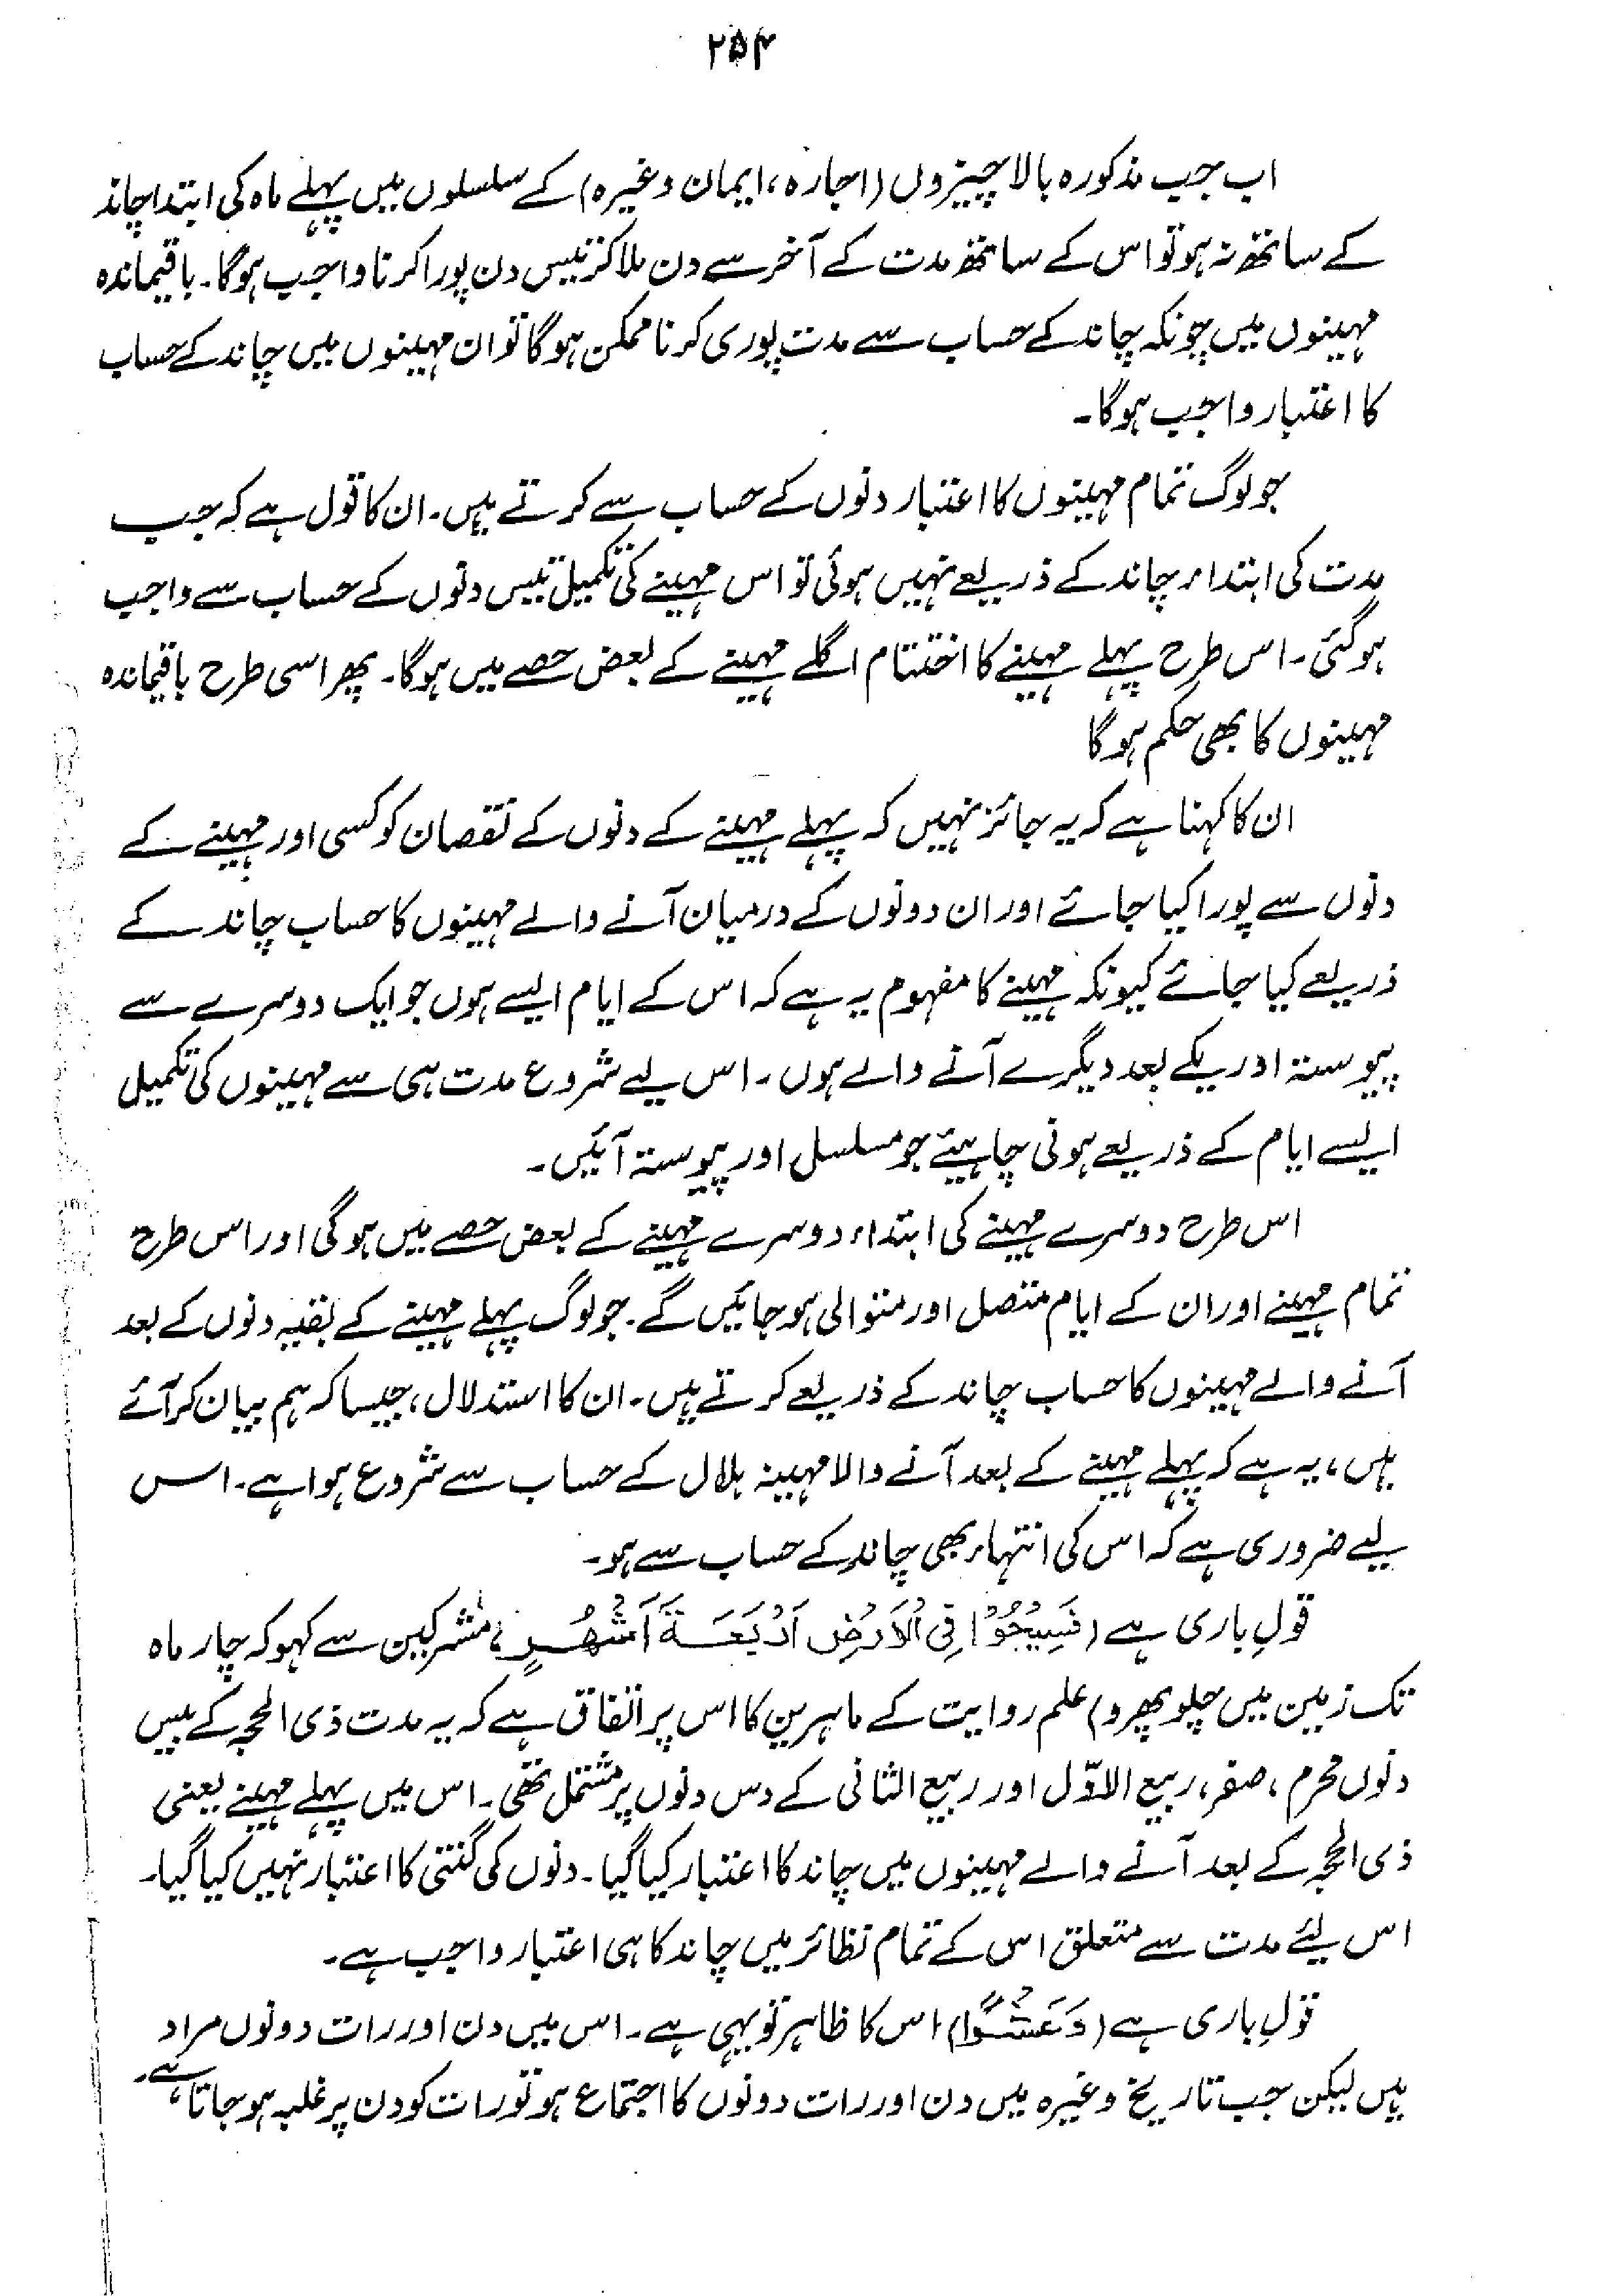 ۲۵۴
اب جب مذکورہ بالا چیزوں (اجارہ، ایمان وغیرہ) کے سلسلوں میں پہلے ماہ کی ابتدا چاند
کے ساتھ نہ ہو تو اس کے ساتھ مدت کے آخر سے دن ملا کر تیس دن پورا کرنا واجب ہوگا۔ باقیماندہ
مہینوں میں چونکہ چاند کے حساب سے مدت پوری کرنا ممکن ہوگا تو ان مہینوں میں چاند کے حساب
کا اعتبار واجب ہوگا۔
جو لوگ تمام مہینوں کا اعتبار دنوں کے حساب سے کرتے ہیں۔ ان کا قول ہے کہ جب
مدت کی ابتداء چاند کے ذریعے نہیں ہوئی تو اس مہینے کی تکمیل تیس دنوں کے حساب سے واجب
ہوگئی۔ اس طرح پہلے مہینے کا اختتام اگلے مہینے کے بعض حصے میں ہوگا۔ پھر اسی طرح باقیماندہ
مہینوں کا بھی حکم ہوگا
ان کا کہنا ہے کہ یہ جائز نہیں کہ پہلے مہینے کے دنوں کے نقصان کو کسی اور مہینے کے
دنوں سے پورا کیا جائے اور ان دونوں کے درمیان آنے والے مہینوں کا حساب چاند کے
ذریعے کیا جائے کیونکہ مہینے کا مفہوم یہ ہے کہ اس کے ایام ایسے ہوں جو ایک دوسرے سے
پیوستہ اور یکے بعد دیگرے آنے والے ہوں۔ اس لیے شروع مدت ہی سے مہینوں کی تکمیل
ایسے ایام کے ذریعے ہونی چاہیئے جو مسلسل اور پیوستہ آئیں۔
اس طرح دوسرے مہینے کی ابتداء دوسرے مہینے کے بعض حصے میں ہوگی اور اس طرح
تمام مہینے اور ان کے ایام متصل اور متوالی ہو جائیں گے۔ جو لوگ پہلے مہینے کے بقیہ دنوں کے بعد
آنے والے مہینوں کا حساب چاند کے ذریعے کرتے ہیں۔ ان کا استدلال، جیسا کہ ہم بیان کر آئے
ہیں، یہ ہے کہ پہلے مہینے کے بعد آنے والا مہینہ ہلال کے حساب سے شروع ہوا ہے۔ اس
لیے ضروری ہے کہ اس کی انتہاء بھی چاند کے حساب سے ہو۔
قولِ باری ہے (فَسِيْحُوْا فِی الْاَرْضِ اَرْبَعَةَ اَشْهُرٍ، مشرکین سے کہو کہ چار ماہ
تک زمین میں چلو پھرو) علم روایت کے ماہرین کا اس پر اتفاق ہے کہ یہ مدت ذی الحجہ کے بیس
دنوں محرم، صفر، ربیع الاوّل اور ربیع الثانی کے دس دنوں پر مشتمل تھی۔ اس میں پہلے مہینے یعنی
ذی الحجہ کے بعد آنے والے مہینوں میں چاند کا اعتبار کیا گیا۔ دنوں کی گنتی کا اعتبار نہیں کیا گیا۔
اس لئے مدت سے متعلق اس کے تمام نظائر میں چاند کا ہی اعتبار واجب ہے۔
قولِ باری ہے (وَعَشْرًا) اس کا ظاہر تو یہی ہے۔ اس میں دن اور رات دونوں مراد
ہیں لیکن جب تاریخ وغیرہ میں دن اور رات دونوں کا اجتماع ہو تو رات کو دن پر غلبہ ہو جاتا ہے۔